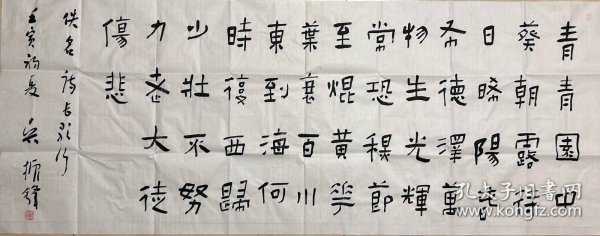 青青園中
葵朝露待
日晞陽春
布德澤萬
物生光輝
常恐穐節
至焜黃華
葉衰百川
東到海何
時復西歸
少壯不努
力老大徒
傷悲
佚名詩長歌行
壬寅初夏 吳振鋒
孔夫子旧书网
www.kongfz.com